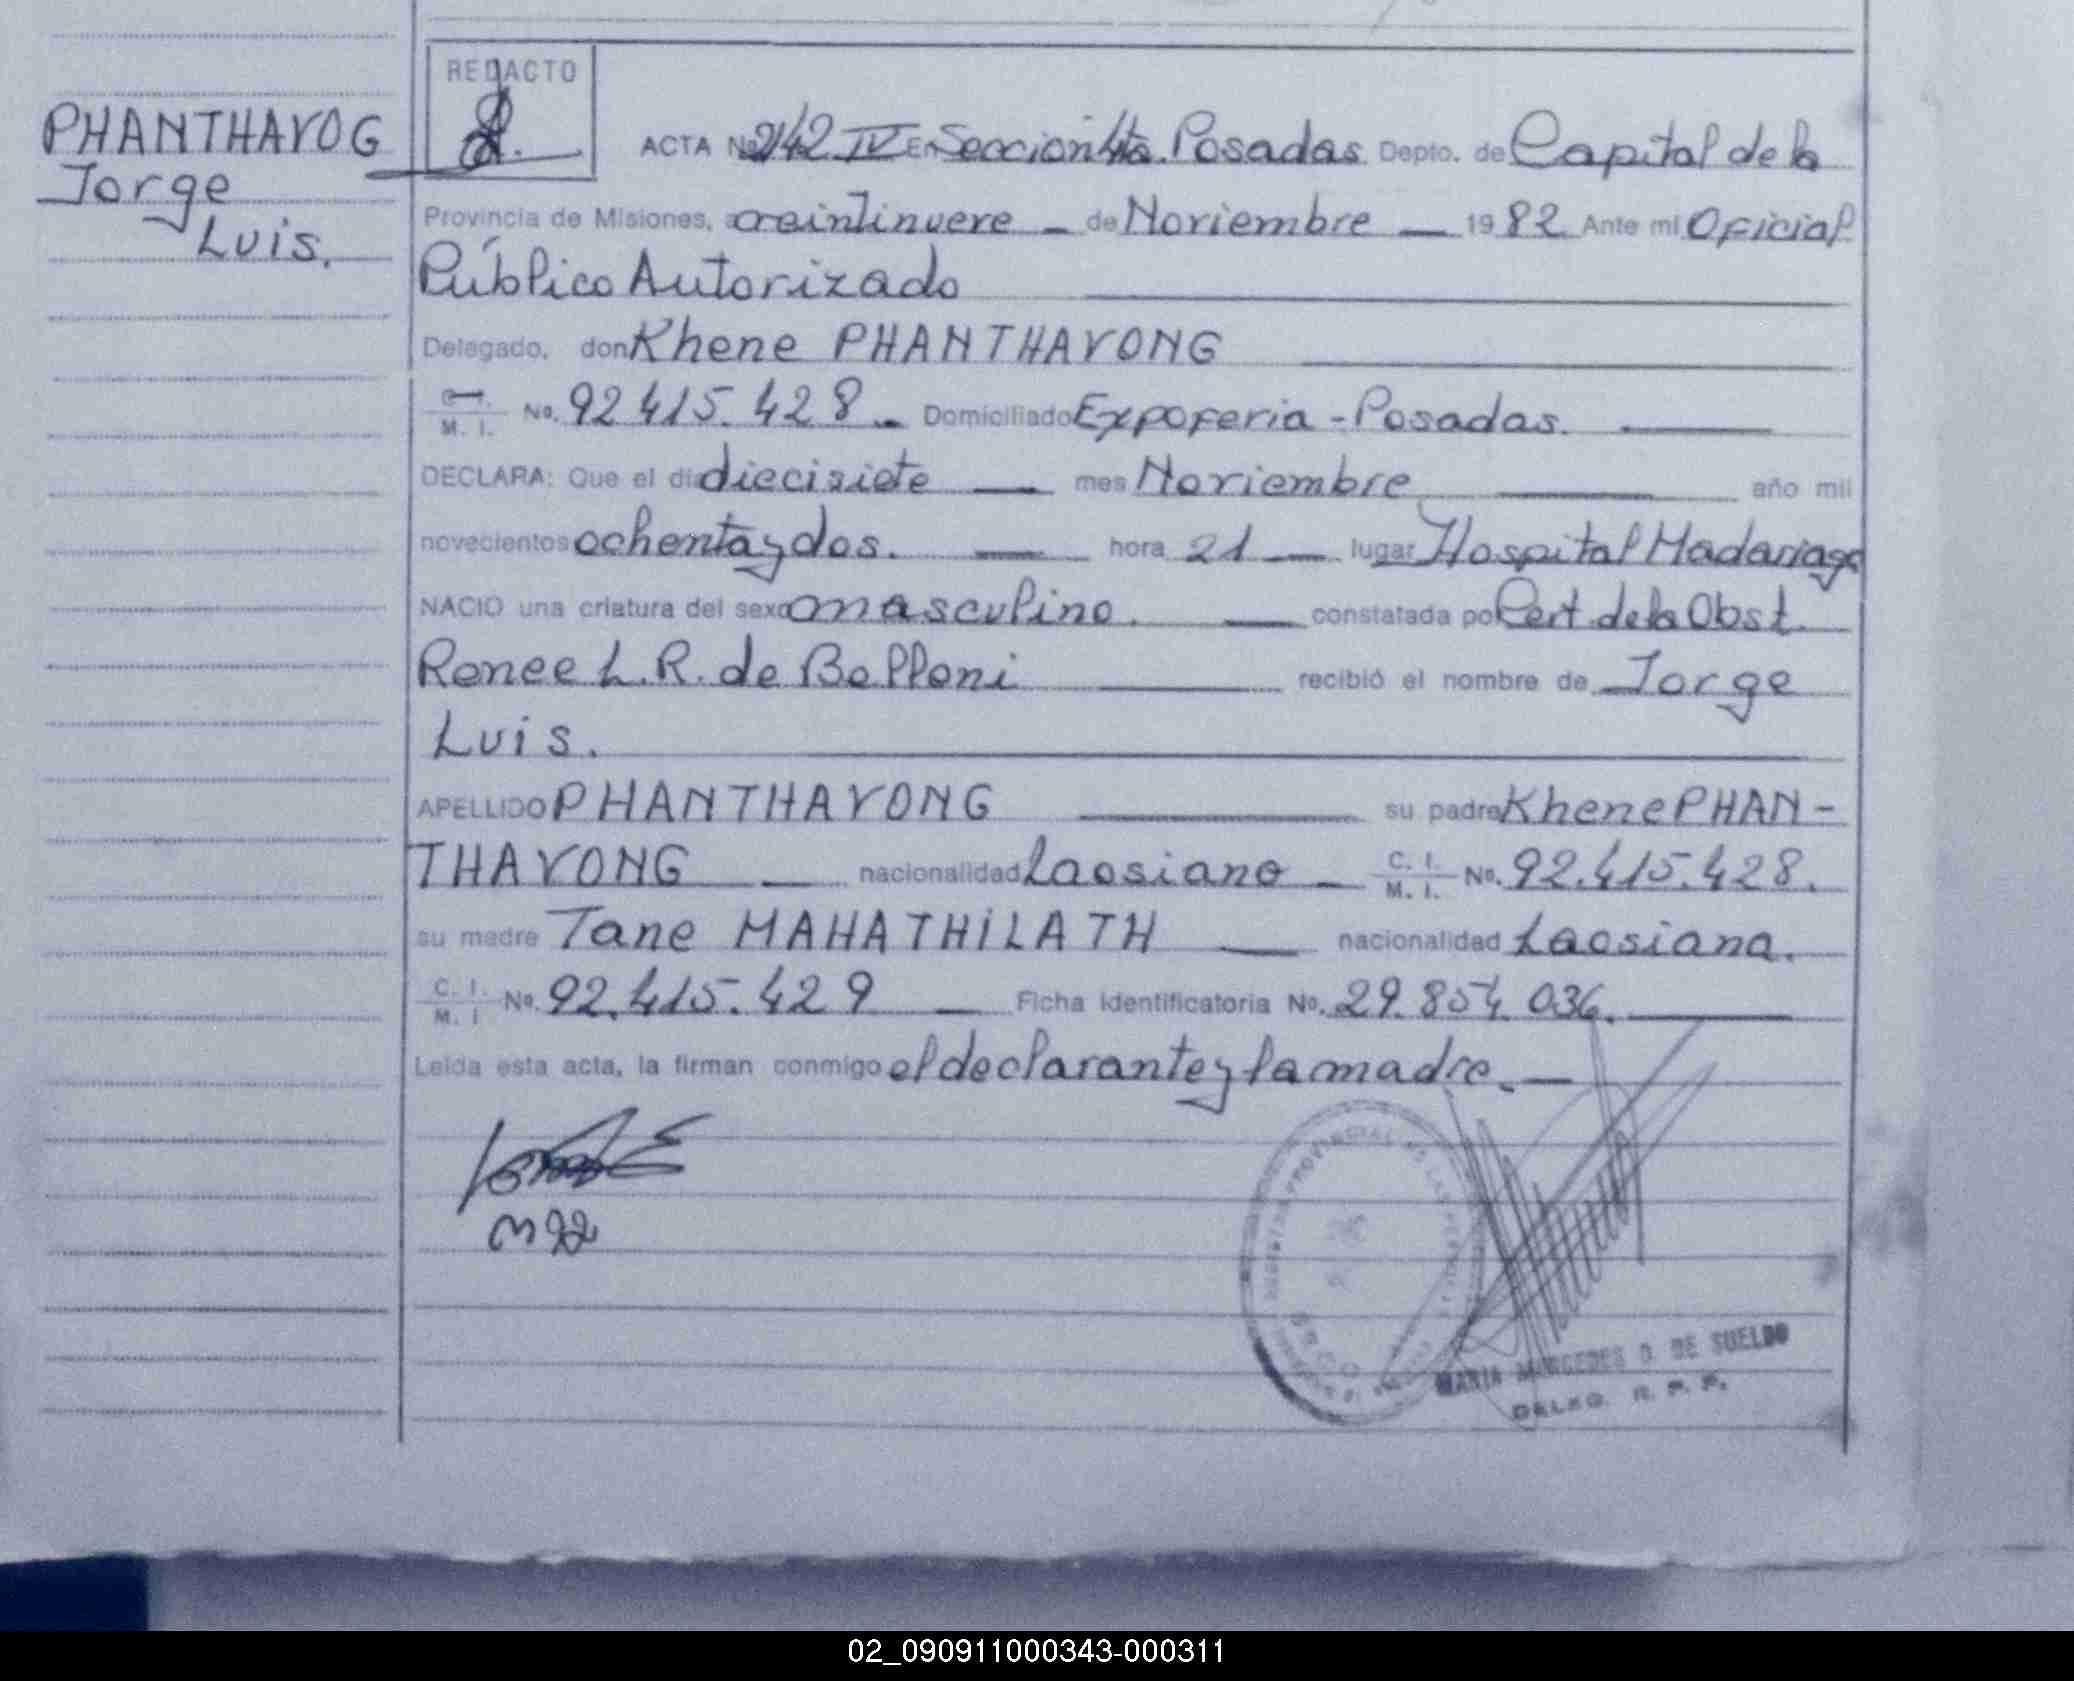 PHANTHAVOG
Jorge
Luis.
REDACTO
ACTA No 2142 IV En Seccion 4ta. Posadas Depto. de Capital de la
Provincia de Misiones, a veintinueve de Noviembre 1982 Ante mi Oficial
Público Autorizado
Delegado, don Khene PHANTHAVONG
M. I. No. 92 415.428 Domiciliado Expoferia - Posadas.
DECLARA: Que el día diecisiete mes Noviembre año mil
novecientos ochenta y dos. hora 21 lugar Hospital Madariaga
NACIO una criatura del sexo masculino. constatada por Cert. de la Obst.
Renee L. R. de Belloni recibió el nombre de Jorge
Luis.
APELLIDO PHANTHAVONG su padre Khene PHAN-
THAVONG nacionalidad Laosiano C. I. M. I. No. 92.415.428.
su madre Tane MAHATHILATH nacionalidad Laosiana.
C. I. M. I No. 92.415.429 Ficha Identificatoria No. 29.854.036.
Leída esta acta, la firman conmigo el declarante y la madre.
MARIA MERCEDES D. DE SUELDO
DELEG. R. P. P.
02_090911000343-000311